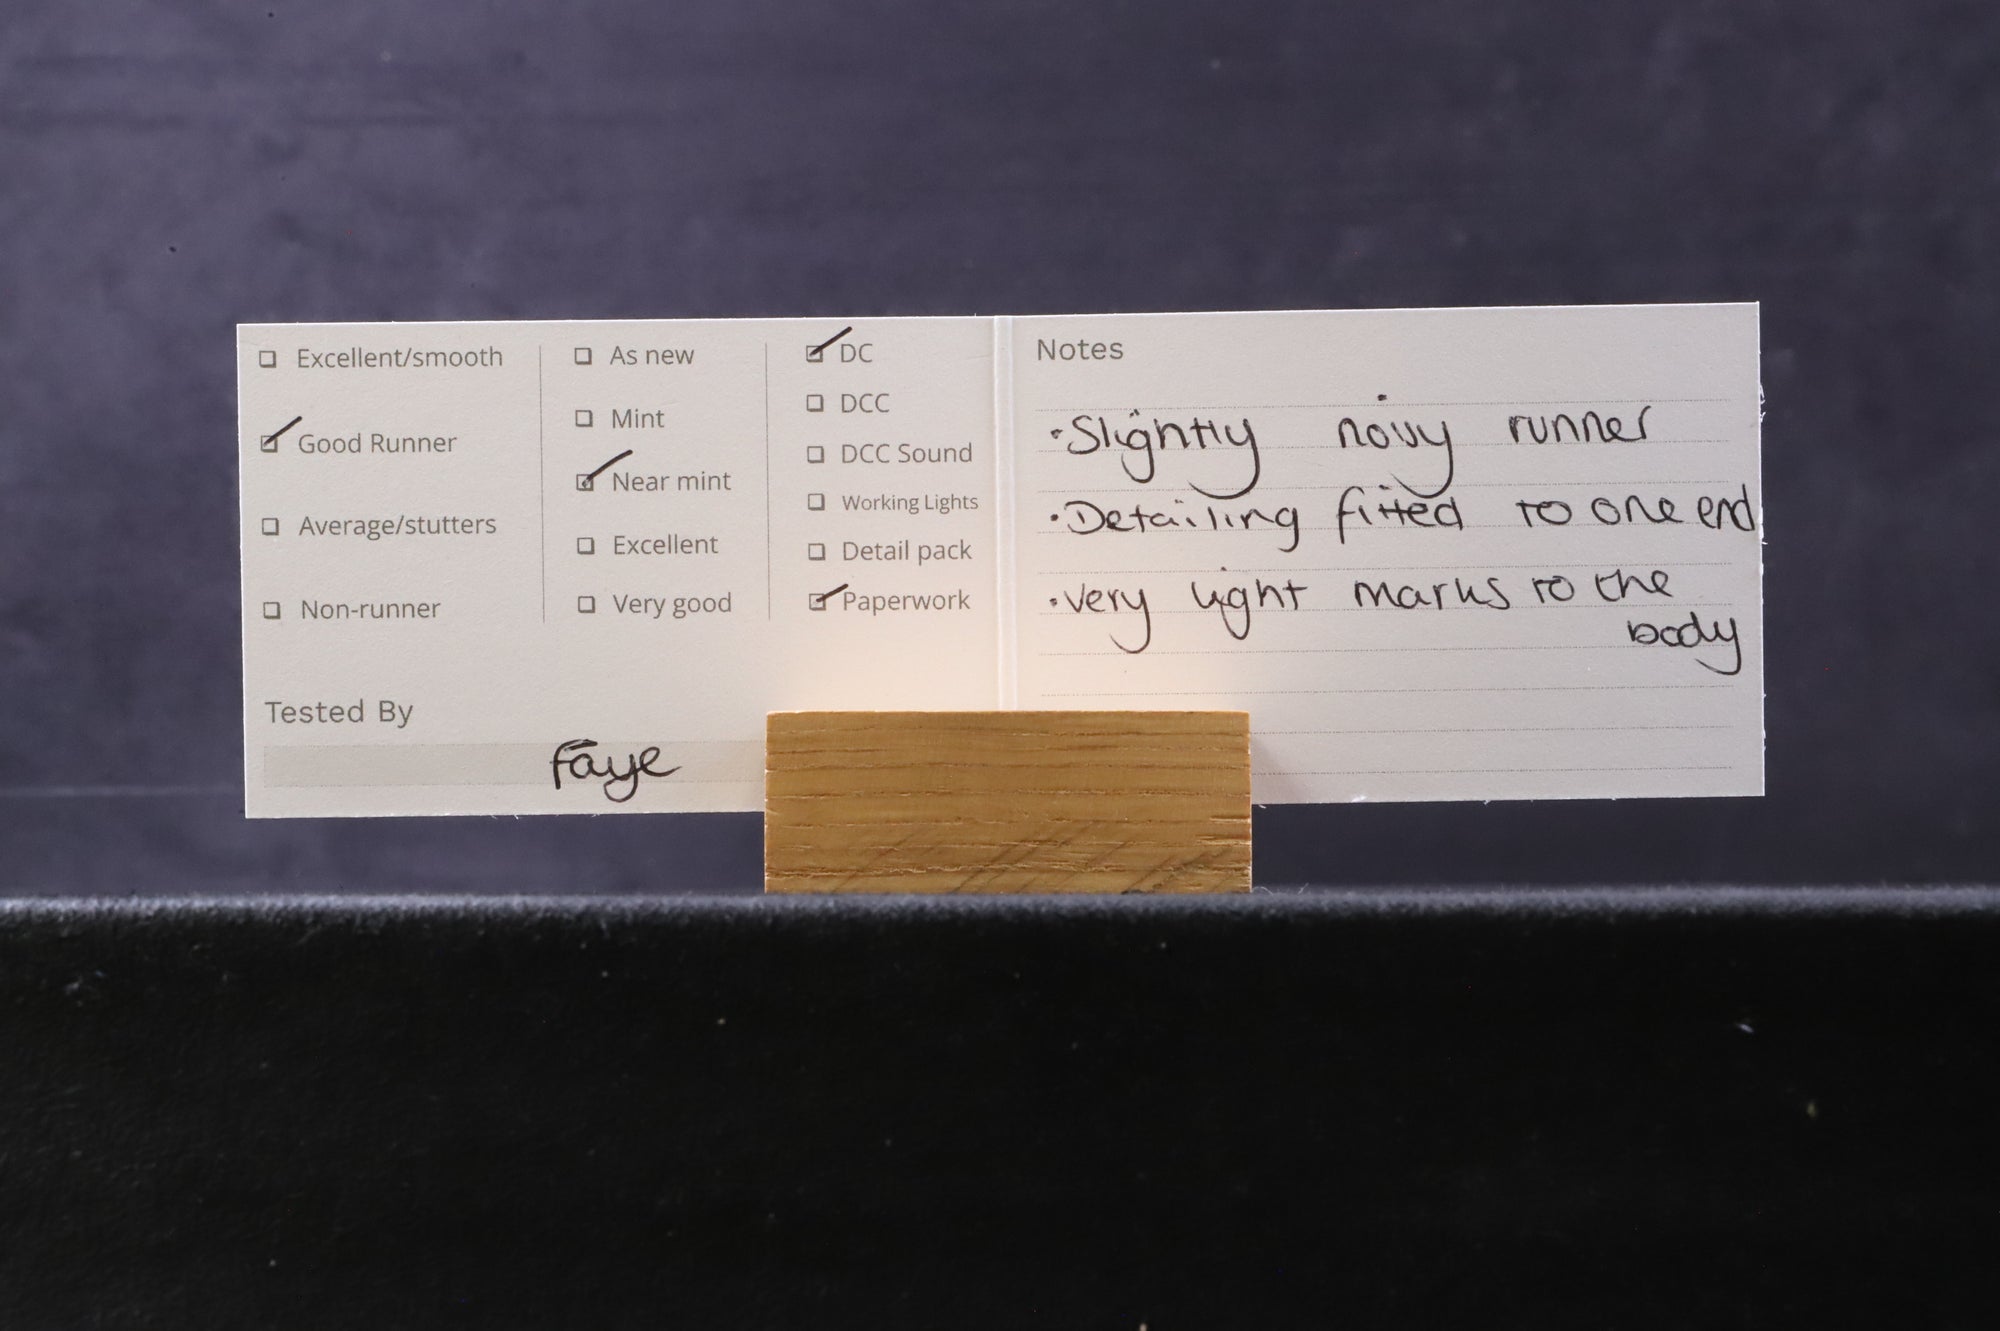 Excellent/smooth
Good Runner
Average/stutters
Non-runner
As new
Mint
Near mint
Excellent
Very good
DC
DCC
DCC Sound
Working Lights
Detail pack
Paperwork
Tested By
Faye
Notes
·Slightly noisy runner
·Detailing fitted to one end
·very light marks to the
body